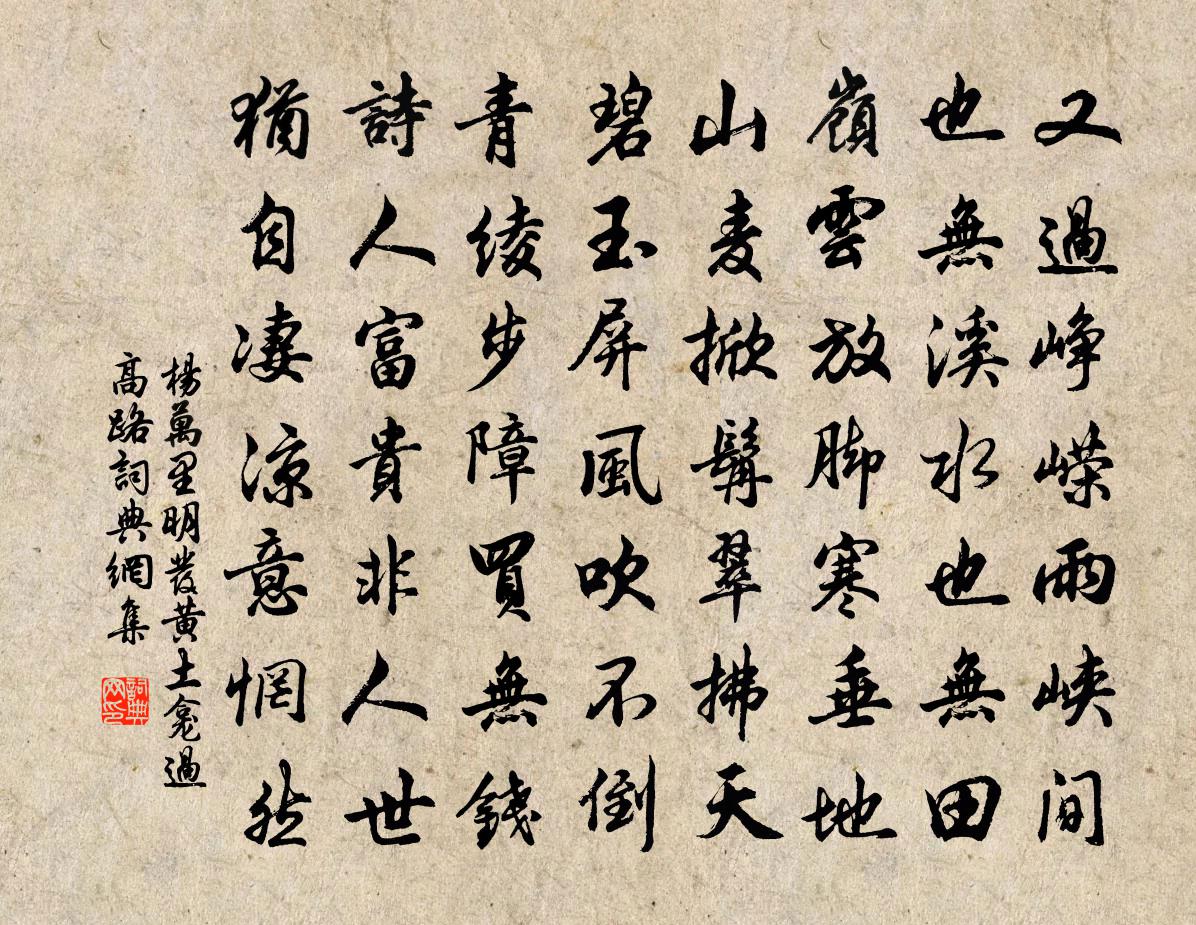 又過崢嶸兩峽間
也無溪水也無田
嶺雲放脚寒垂地
山麦掀髯翠拂天
碧玉屏風吹不倒
青綾步障買無錢
詩人富貴非人世
猶自凄涼意惘然
楊萬里明發黄土龕過
高路詞典網集
詞典
网印